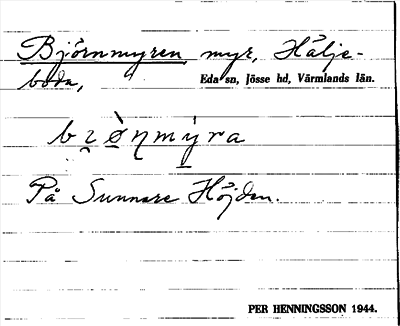 Björnmyren myr, Hälje-
boda,
Eda sn, Jösse hd, Värmlands län.
På Sunnare Höjden.
PER HENNINGSSON 1944.